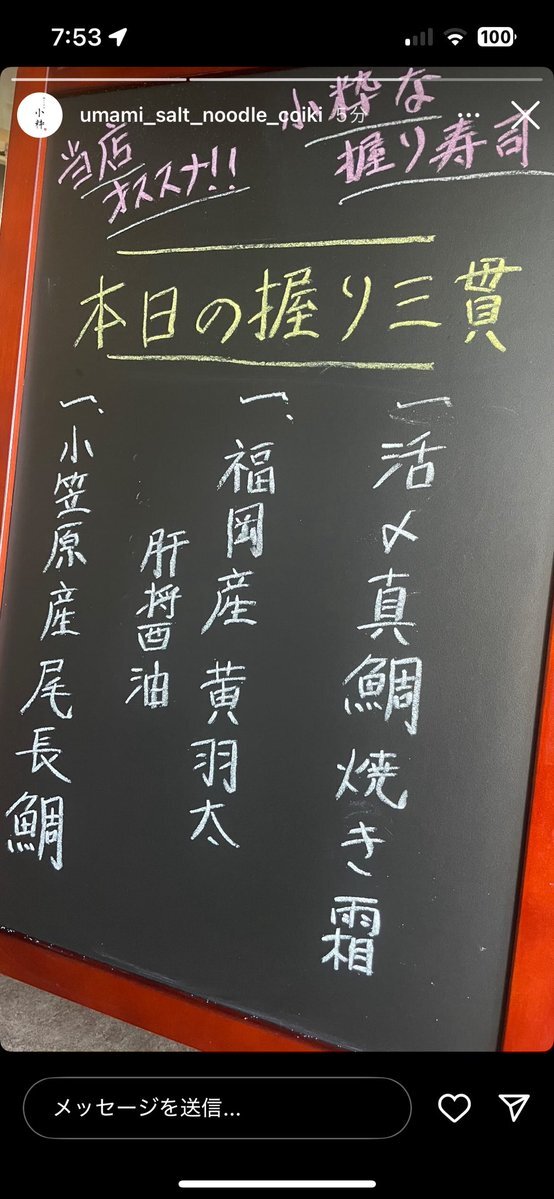 7:53
100
umami_salt_noodle_coiki 5分
小粋な
握り寿司
当店
オススメ!!
本日の握り三貫
一活〆真鯛焼き霜
一、福岡産黄羽太
肝醤油
一、小笠原産尾長鯛
小粋。
メッセージを送信...